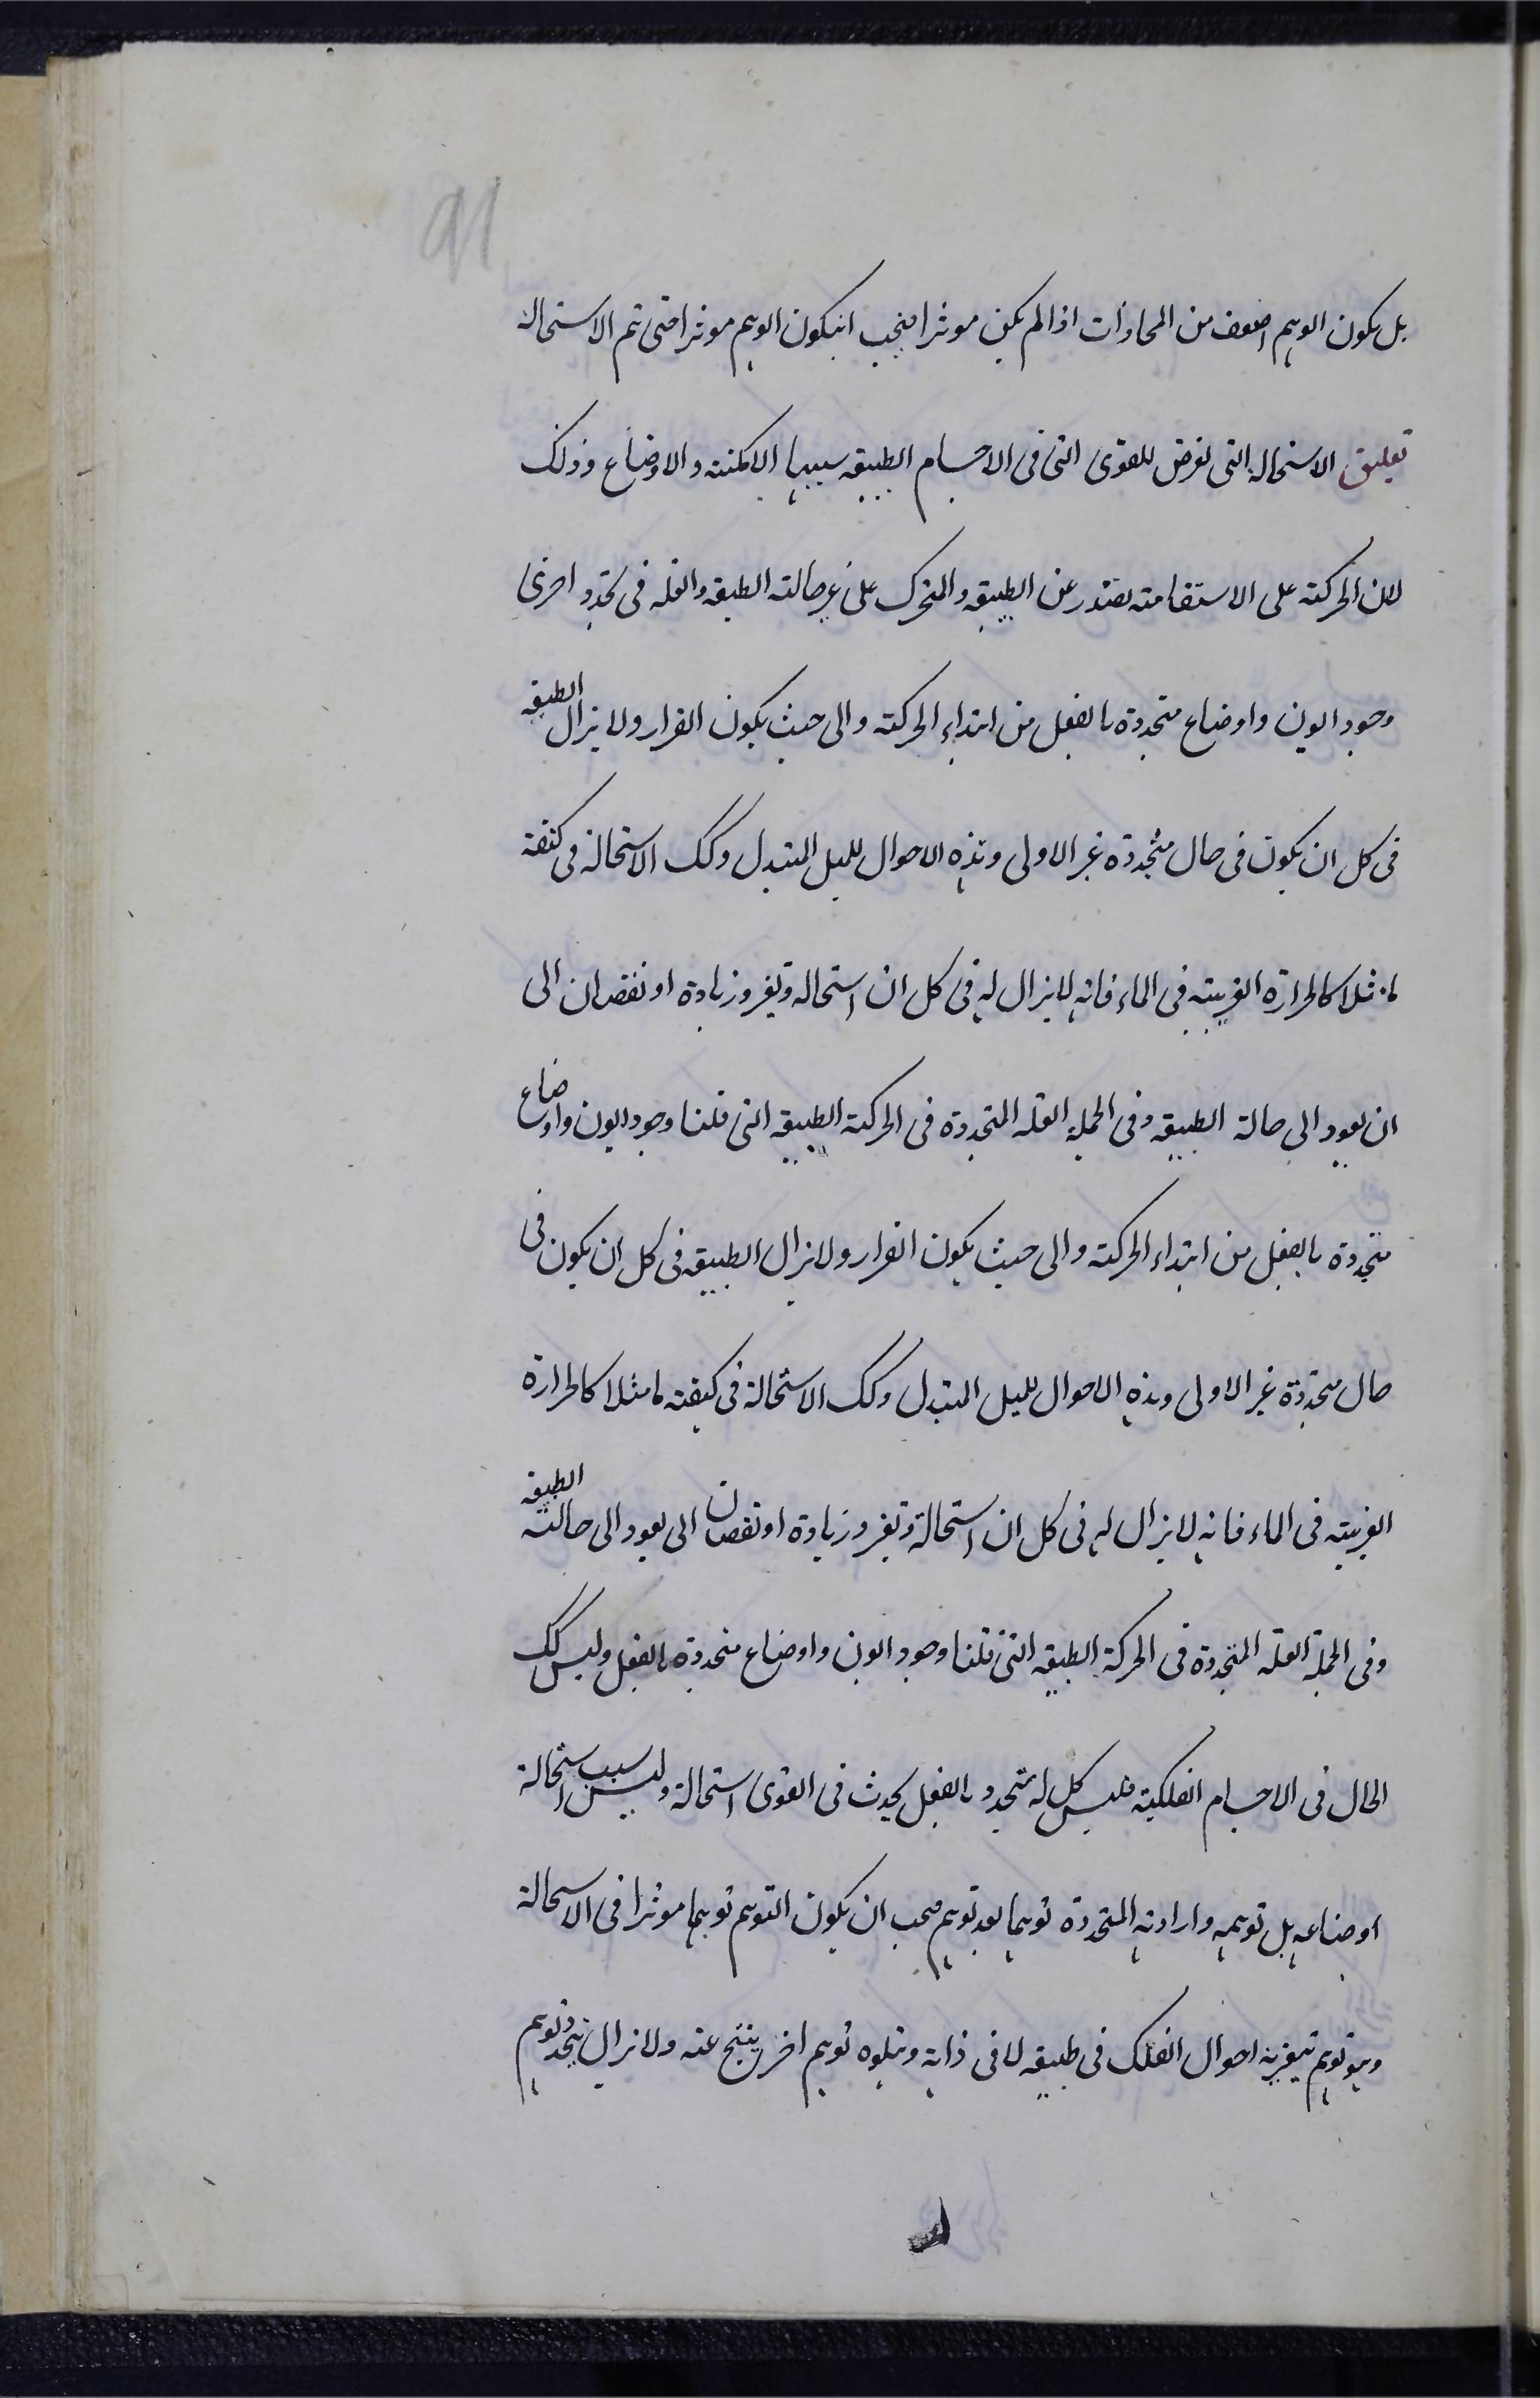 91
بل يكون الوهم اضعف من المحاذات اذا لم يكن موثرا فيجب انيكون الوهم موثرا حتى تتم الاستحالة
تعليق الاستحالة التى تعرض للقوى التى فى الاجسام الطبيعيه سببها الامكنة والاوضاع وذلك
لان الحركة على الاستقامة تصدر عن الطبيعه والمتحرك على غير حالته الطبيعه والعله فى تجدد اجزى
وجود اليون واوضاع متجددة بالفعل من ابتداء الحركة والى حيث يكون القرار ولا يزال الطبيعه
فى كل ان يكون فى حال متجددة غير الاولى وهذه الاحوال للميل المتبدل وكك الاستحالة فى كيفية
ما مثلا كالحرارة الغريبة فى الماء فانه لا يزال له فى كل ان استحالة وتغير وزيادة او نقصان الى
ان يعود الى حالة الطبيعيه وفى الجملة العله المتجددة فى الحركة الطبيعيه التى قلنا وجود اليون واوضاع
متجددة بالفعل من ابتداء الحركة والى حيث يكون القرار ولا تزال الطبيعيه فى كل ان يكون فى
حال متجددة غير الاولى وهذه الاحوال للميل المتبدل وكك الاستحالة فى كيفية ما مثلا كالحرارة
الغريبة فى الماء فانه لا يزال له فى كل ان استحالة وتغير وزيادة او نقصان الى يعود الى حالته الطبيعه
وفى الجملة العله المتجددة فى الحركة الطبيعيه التى قلنا وجود اليون واوضاع متجددة بالفعل وليس كك
الحال فى الاجسام الفلكية فليس كل له متجدد بالفعل يحدث فى القوى استحالة وليس سبب استحالة
اوضاعه بل توهمه وارادته المتجددة توهما بعد توهم فيجب ان يكون التوهم توهما موثرا فى الاستحالة
وهو توهم تتغير به احوال الفلك فى طبيعه لا فى ذاته ويتلوه توهم اخر ينتج عنه ولا تزال يتجدد توهم